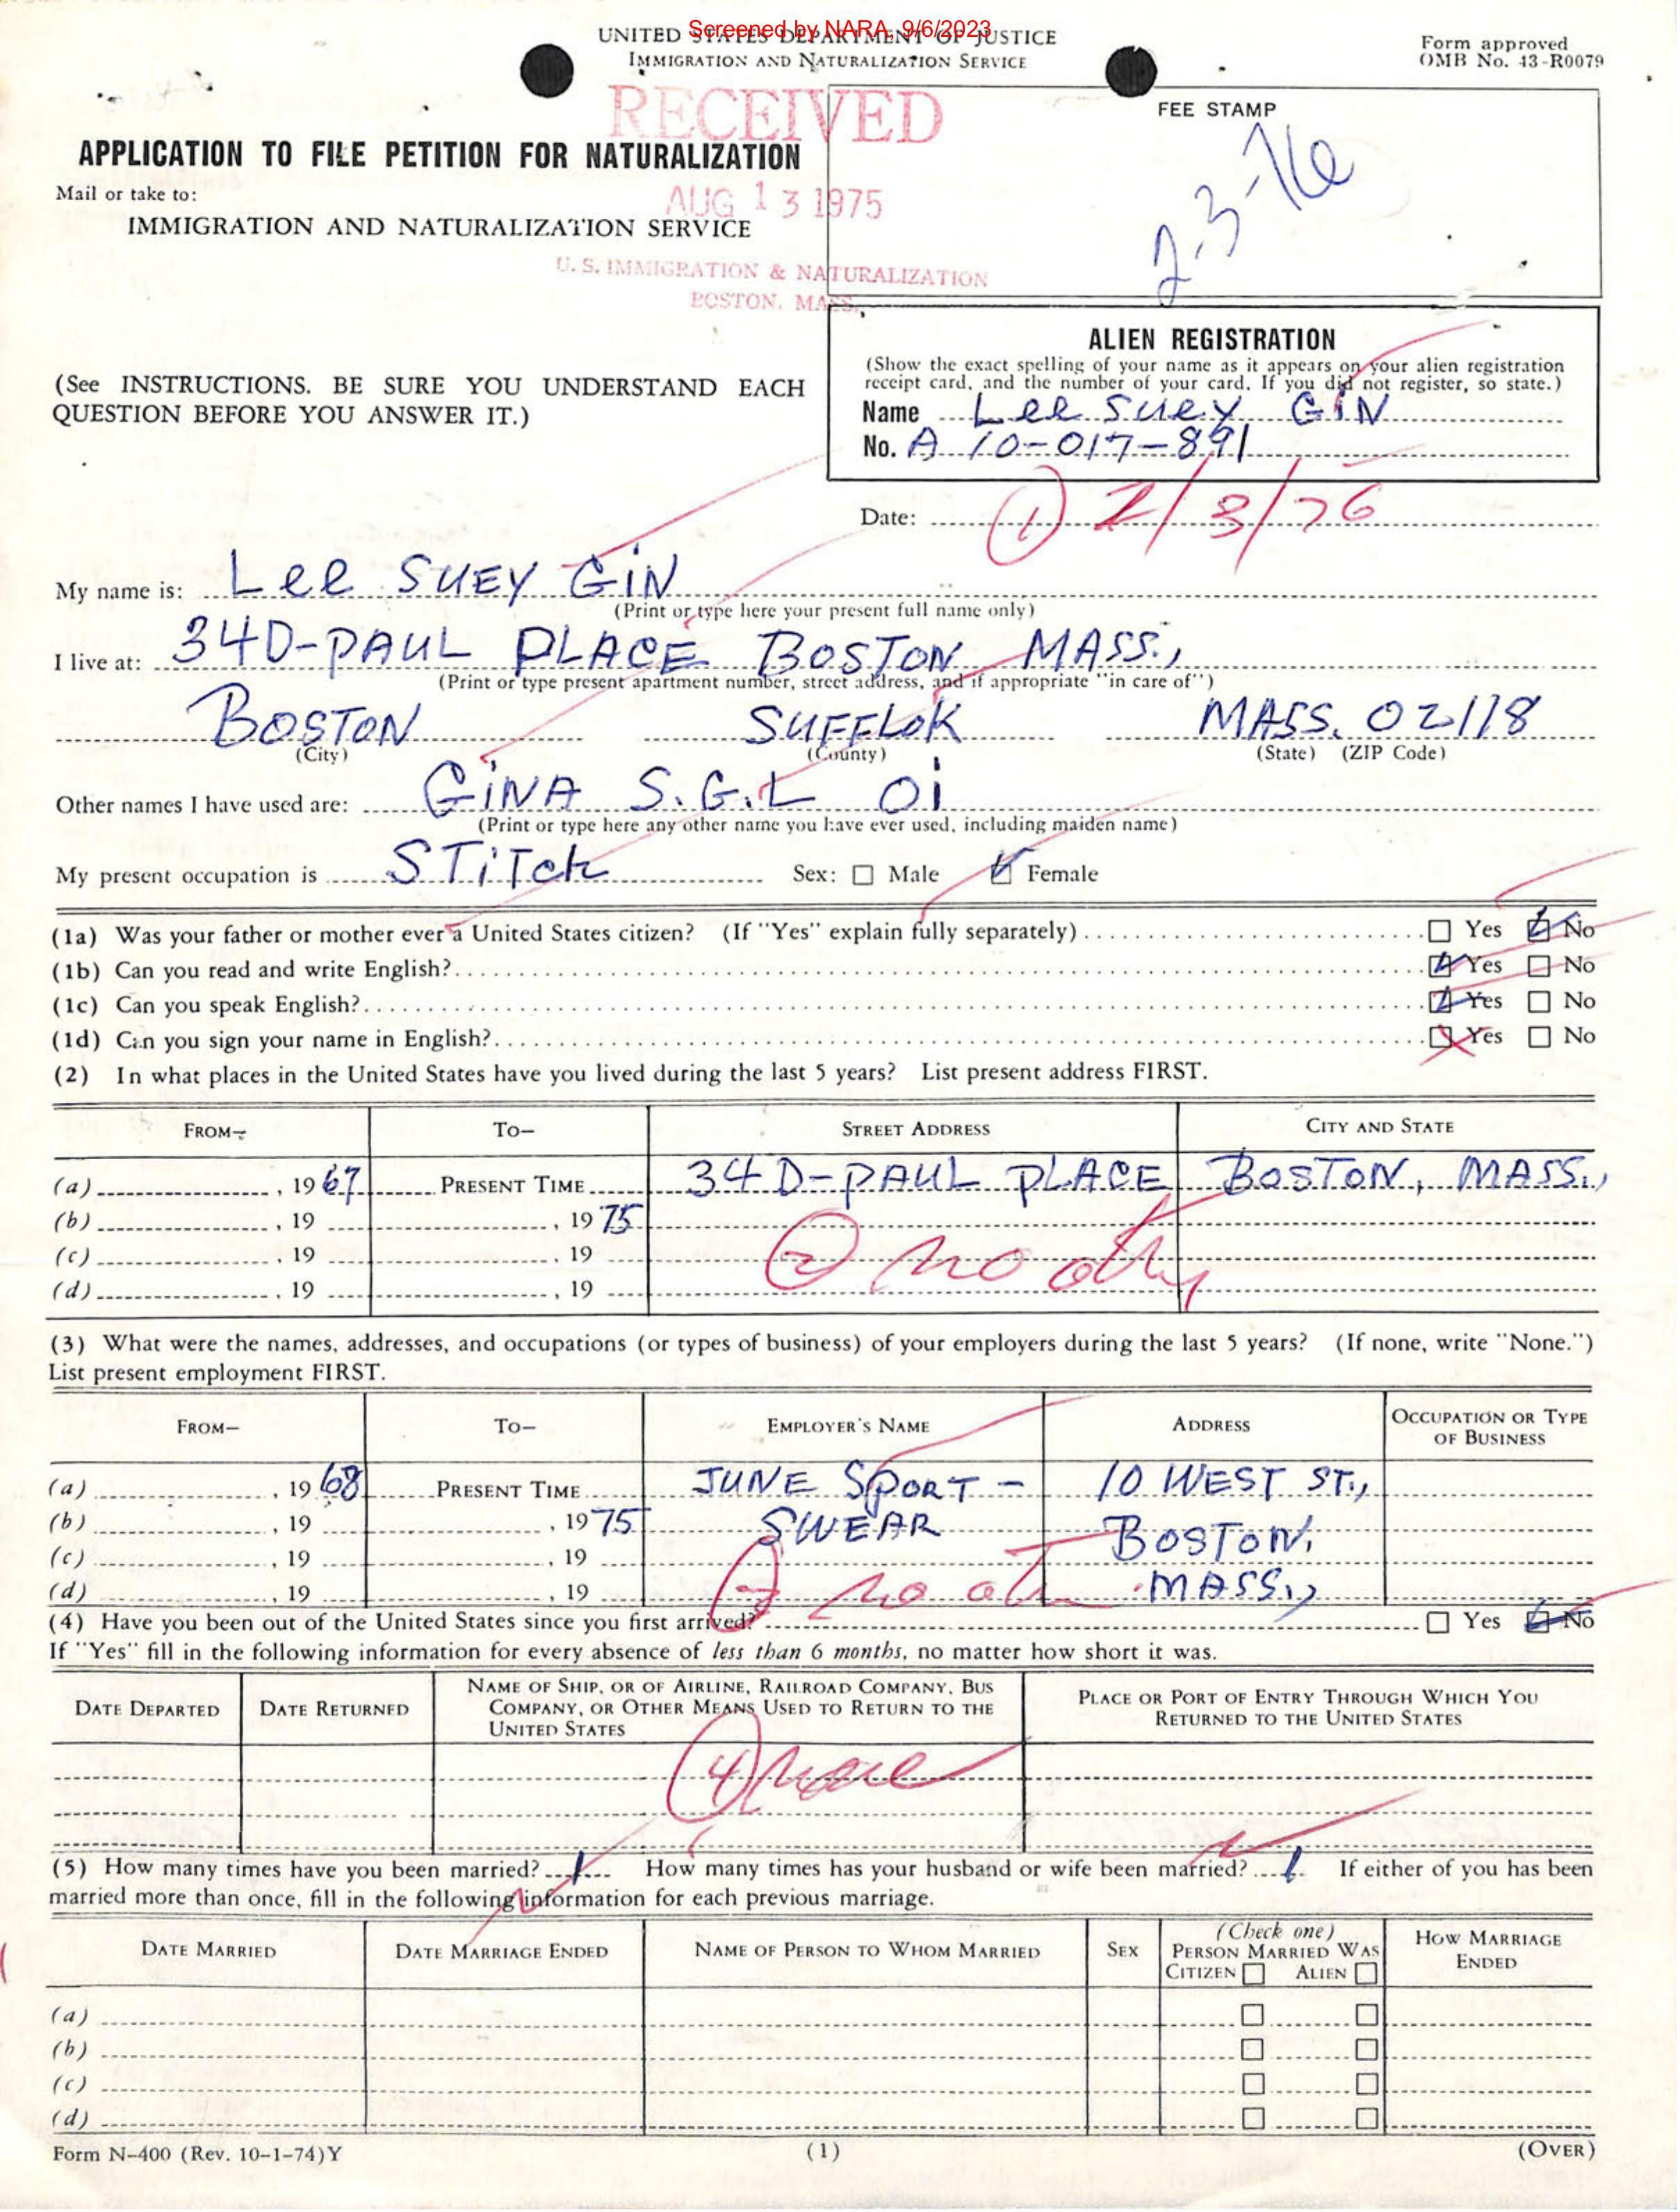 Screened by NARA, 9/6/2023
UNITED STATES DEPARTMENT OF JUSTICE
IMMIGRATION AND NATURALIZATION SERVICE
Form approved
OMB No. 43-R0079
RECEIVED
FEE STAMP
2-3-76
APPLICATION TO FILE PETITION FOR NATURALIZATION
Mail or take to:
AUG 13 1975
IMMIGRATION AND NATURALIZATION SERVICE
U. S. IMMIGRATION & NATURALIZATION
BOSTON, MASS.
ALIEN REGISTRATION
(Show the exact spelling of your name as it appears on your alien registration
receipt card, and the number of your card. If you did not register, so state.)
Name Lee SUEY GIN
No. A 10-017-891
(See INSTRUCTIONS. BE SURE YOU UNDERSTAND EACH
QUESTION BEFORE YOU ANSWER IT.)
Date: (1) 2/3/76
My name is: Lee SUEY GIN
(Print or type here your present full name only)
I live at: 34D-PAUL PLACE BOSTON MASS.,
(Print or type present apartment number, street address, and if appropriate "in care of")
BOSTON SUFFLOK MASS. 02118
(City) (County) (State) (ZIP Code)
Other names I have used are: GINA S.G.L Oi
(Print or type here any other name you have ever used, including maiden name)
My present occupation is STiTch Sex: Male Female
(1a) Was your father or mother ever a United States citizen? (If "Yes" explain fully separately) Yes No
(1b) Can you read and write English? Yes No
(1c) Can you speak English? Yes No
(1d) Can you sign your name in English? Yes No
(2) In what places in the United States have you lived during the last 5 years? List present address FIRST.
FROM— TO— STREET ADDRESS CITY AND STATE
(a) , 19 67 PRESENT TIME 34 D-PAUL PLACE BOSTON, MASS.,
(b) , 19 , 19 75
(c) , 19 , 19
(2) no oth
(d) , 19 , 19
(3) What were the names, addresses, and occupations (or types of business) of your employers during the last 5 years? (If none, write "None.")
List present employment FIRST.
FROM— TO— EMPLOYER'S NAME ADDRESS OCCUPATION OR TYPE OF BUSINESS
(a) , 19 68 PRESENT TIME JUNE SPORT- 10 WEST ST.,
(b) , 19 , 19 75 SWEAR BOSTON,
(c) , 19 , 19
(d) , 19 , 19 no oth MASS.,
(4) Have you been out of the United States since you first arrived? Yes No
If "Yes" fill in the following information for every absence of less than 6 months, no matter how short it was.
DATE DEPARTED DATE RETURNED NAME OF SHIP, OR OF AIRLINE, RAILROAD COMPANY, BUS COMPANY, OR OTHER MEANS USED TO RETURN TO THE UNITED STATES PLACE OR PORT OF ENTRY THROUGH WHICH YOU RETURNED TO THE UNITED STATES
(4) None
(5) How many times have you been married? 1 How many times has your husband or wife been married? 1. If either of you has been
married more than once, fill in the following information for each previous marriage.
DATE MARRIED DATE MARRIAGE ENDED NAME OF PERSON TO WHOM MARRIED SEX (Check one) PERSON MARRIED WAS CITIZEN ALIEN HOW MARRIAGE ENDED
(a)
(b)
(c)
(d)
Form N-400 (Rev. 10-1-74)Y (1) (OVER)